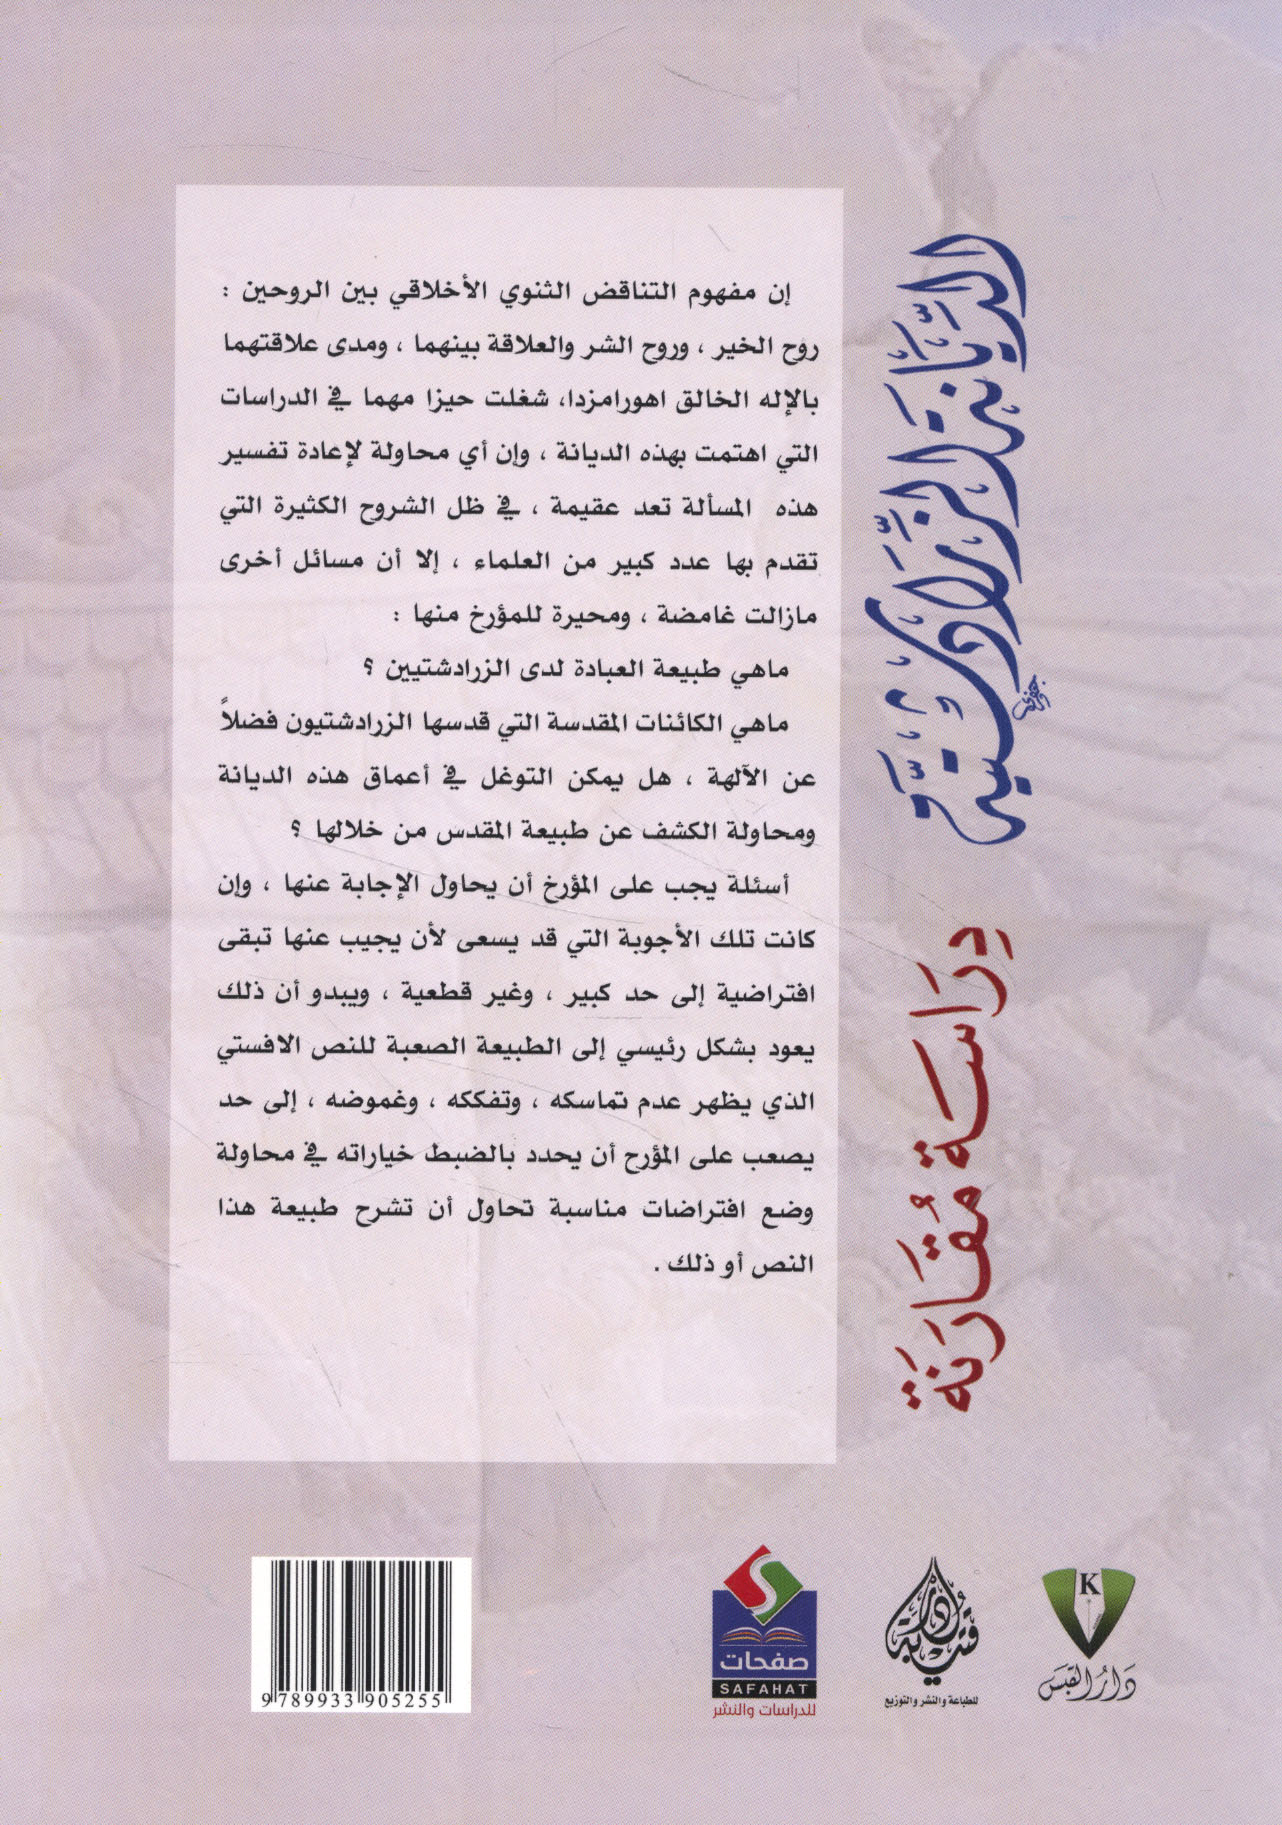 إن مفهوم التناقض الثنوي الأخلاقي بين الروحين :
روح الخير ، وروح الشر والعلاقة بينهما ، ومدى علاقتهما
بالإله الخالق اهورامزدا، شغلت حيزا مهما في الدراسات
التي اهتمت بهذه الديانة ، وإن أي محاولة لإعادة تفسير
هذه المسألة تعد عقيمة ، في ظل الشروح الكثيرة التي
تقدم بها عدد كبير من العلماء ، إلا أن مسائل أخرى
مازالت غامضة ، ومحيرة للمؤرخ منها :
ماهي طبيعة العبادة لدى الزرادشتيين ؟
ماهي الكائنات المقدسة التي قدسها الزرادشتيون فضلاً
عن الآلهة ، هل يمكن التوغل في أعماق هذه الديانة
ومحاولة الكشف عن طبيعة المقدس من خلالها ؟
أسئلة يجب على المؤرخ أن يحاول الإجابة عنها ، وإن
كانت تلك الأجوبة التي قد يسعى لأن يجيب عنها تبقى
افتراضية إلى حد كبير ، وغير قطعية ، ويبدو أن ذلك
يعود بشكل رئيسي إلى الطبيعة الصعبة للنص الافستي
الذي يظهر عدم تماسكه ، وتفككه ، وغموضه ، إلى حد
يصعب على المؤرح أن يحدد بالضبط خياراته في محاولة
وضع افتراضات مناسبة تحاول أن تشرح طبيعة هذا
النص أو ذلك .
الديَّانَة الزَّرادشتيَّة
دِرَاسَة مُقَارَنَة
K
دَارُ القبَس
للطباعة والنشر والتوزيع
صفحات
SAFAHAT
للدراسات والنشر
9 789933 905255